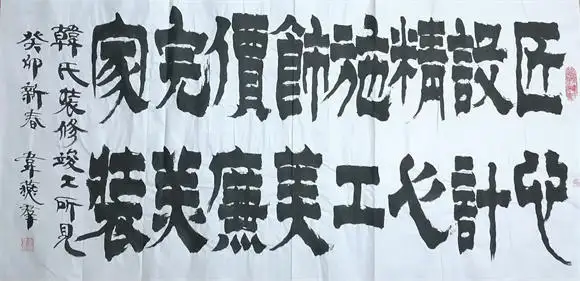 匠心
設計
精心
施工
飾美
價廉
完美
家裝
韓氏装修竣工所見
癸卯新春